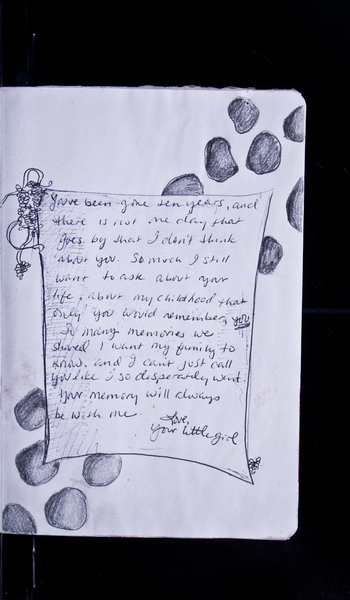 You've been gone ten years, and
there is not one day that
goes by that I don't think
about you. So much I still
want to ask about your
life, about my childhood that
only you would remember, you
So many memories we
shared I want my family to
know, and I can't just call
you like I so desperately want.
Your memory will always
be with me.
Love,
Your little girl